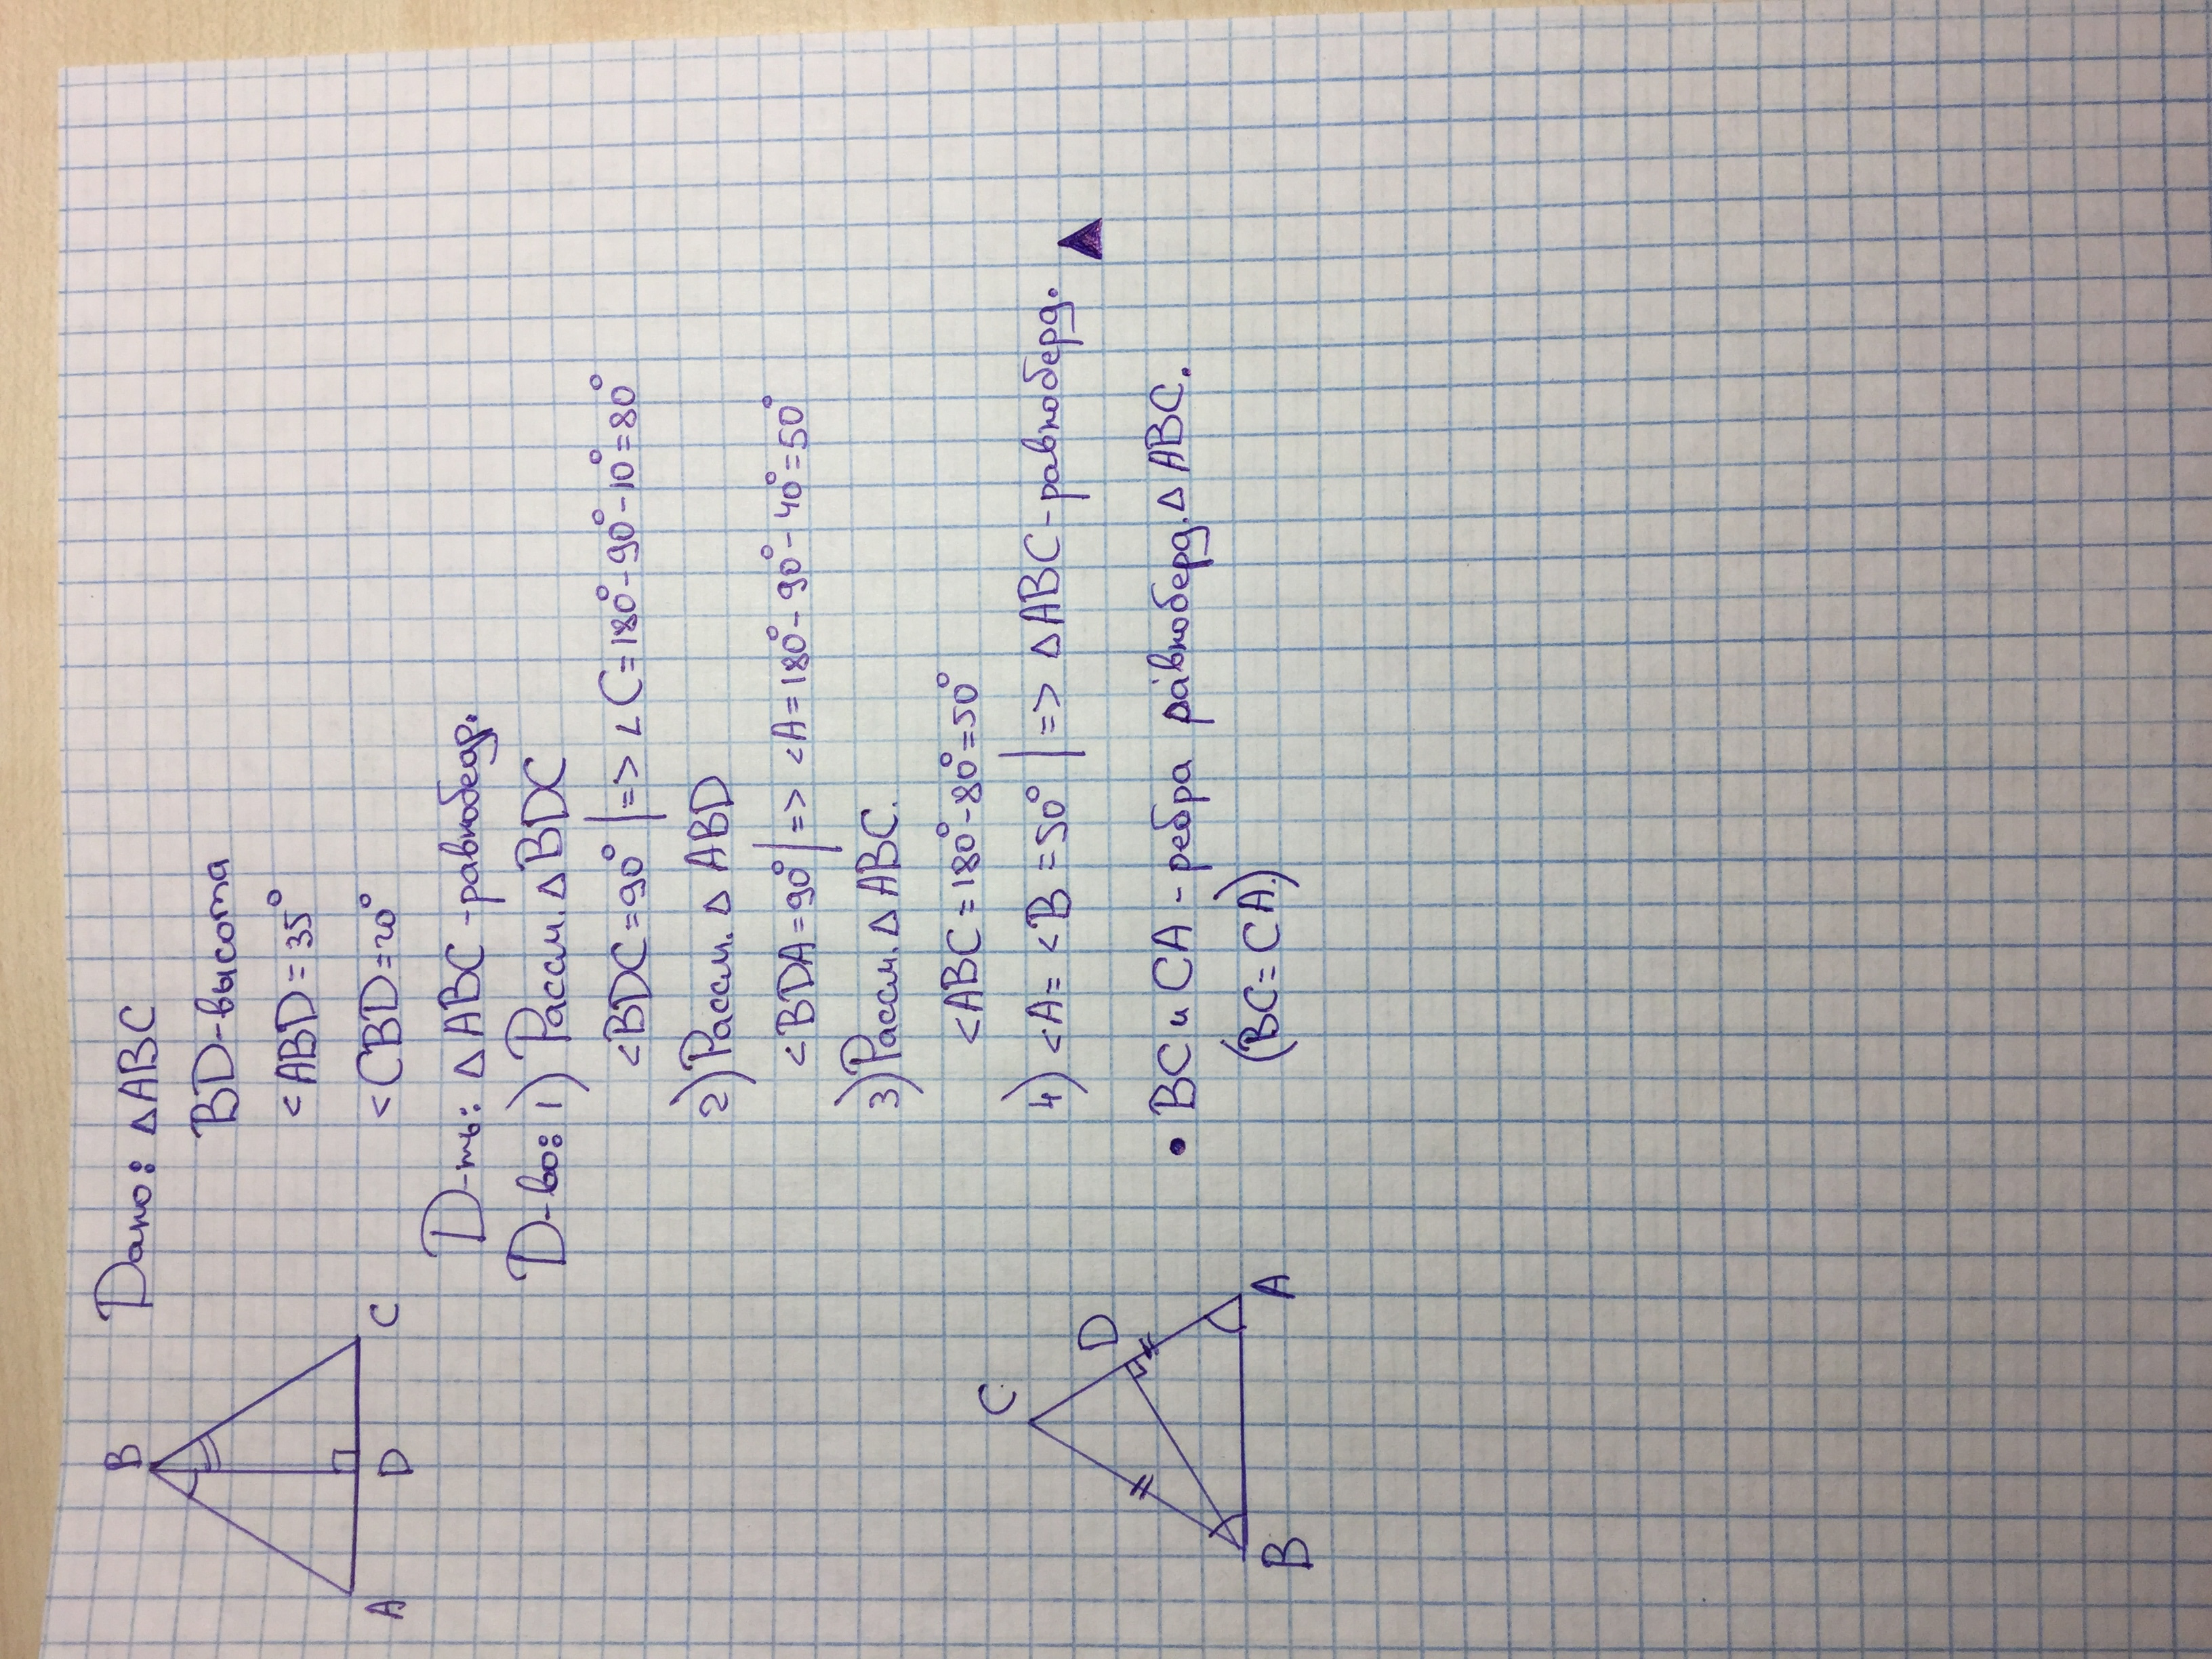 Дано: △ABC
BD-высота
<ABD=35°
<CBD=20°
D-ть: △ABC-равнобедр.
D-во: 1) Рассм. △BDC
<BDC=90° |=> ∠C=180°-90°-10°=80°
2) Рассм. △ ABD
<BDA=90° |=> <A=180°-90°-40°=50°
3) Рассм. △ ABC.
<ABC=180°-80°=50°
4) <A= <B =50° |=> △ABC-равноберд.
• BC и CA - ребра равноберд. △ ABC.
(BC=CA.)
B
A
D
C
C
D
B
A